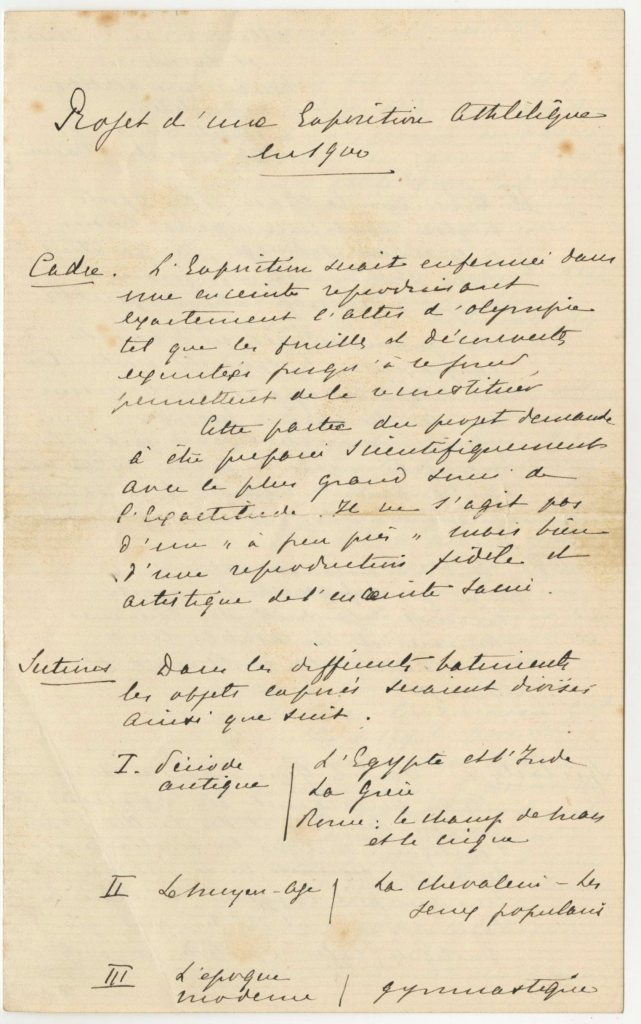 Projet d'une Exposition Athlétique
en 1900
Cadre. L'Exposition serait enfermée dans
une enceinte reproduisant
exactement l'altis d'Olympie
tel que les fouilles et découvertes
exécutées jusqu'à
permettent de le reconstituer
Cette partie du projet demande
à être préparée scientifiquement
avec le plus grand souci de
l'Exactitude. Il ne s'agit pas
d'un « à peu près » mais bien
d'une reproduction fidèle et
artistique de l'enceinte sacrée.
Dans les différents batiments
les objets exposés seraient divisés
ainsi que suit.
I. Période antique | L'Egypte et l'Inde
La Grèce
Rome : le champ de mars
et le cirque
II Le moyen-age | La chevalerie - Les
Jeux populaires
III L'époque
moderne | gymnastique